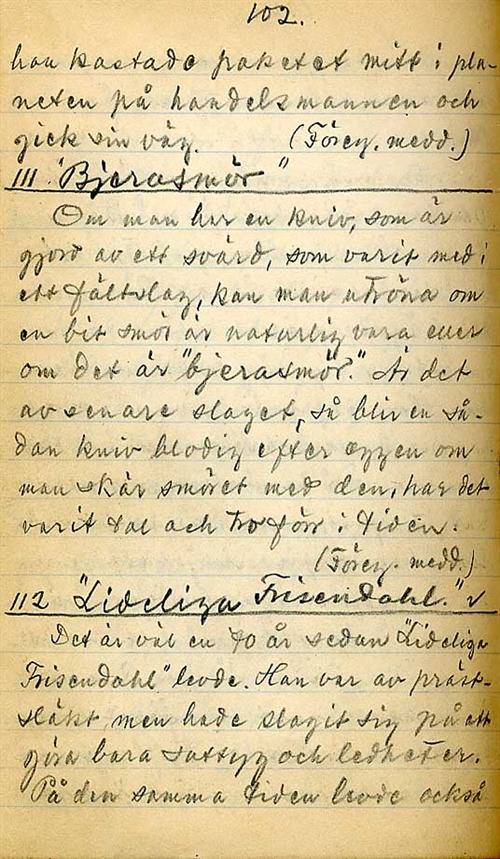 102.
han kastade paketet mitt i pla-
neten på handelsmannen och
gick sin väg. (Föreg. medd.)
111 "Bjerasmör"
Om man har en kniv, som är
gjord av ett svärd, som varit med i
ett fältslag, kan man utröna om
en bit smör är naturlig vara eller
om det är "bjerasmör." Är det
av senare slaget, så blir en så-
dan kniv blodig efter eggen om
man skär smöret med den, har det
varit tal och tro förr i tiden.
(Föreg. medd.)
112 "Lideliga Frisendahl."
Det är väl en 70 år sedan "Lideliga
Frisendahl" levde. Han var av präst-
släkt men hade slagit sig på att
göra bara sattyg och ledheter.
På den samma tiden levde också